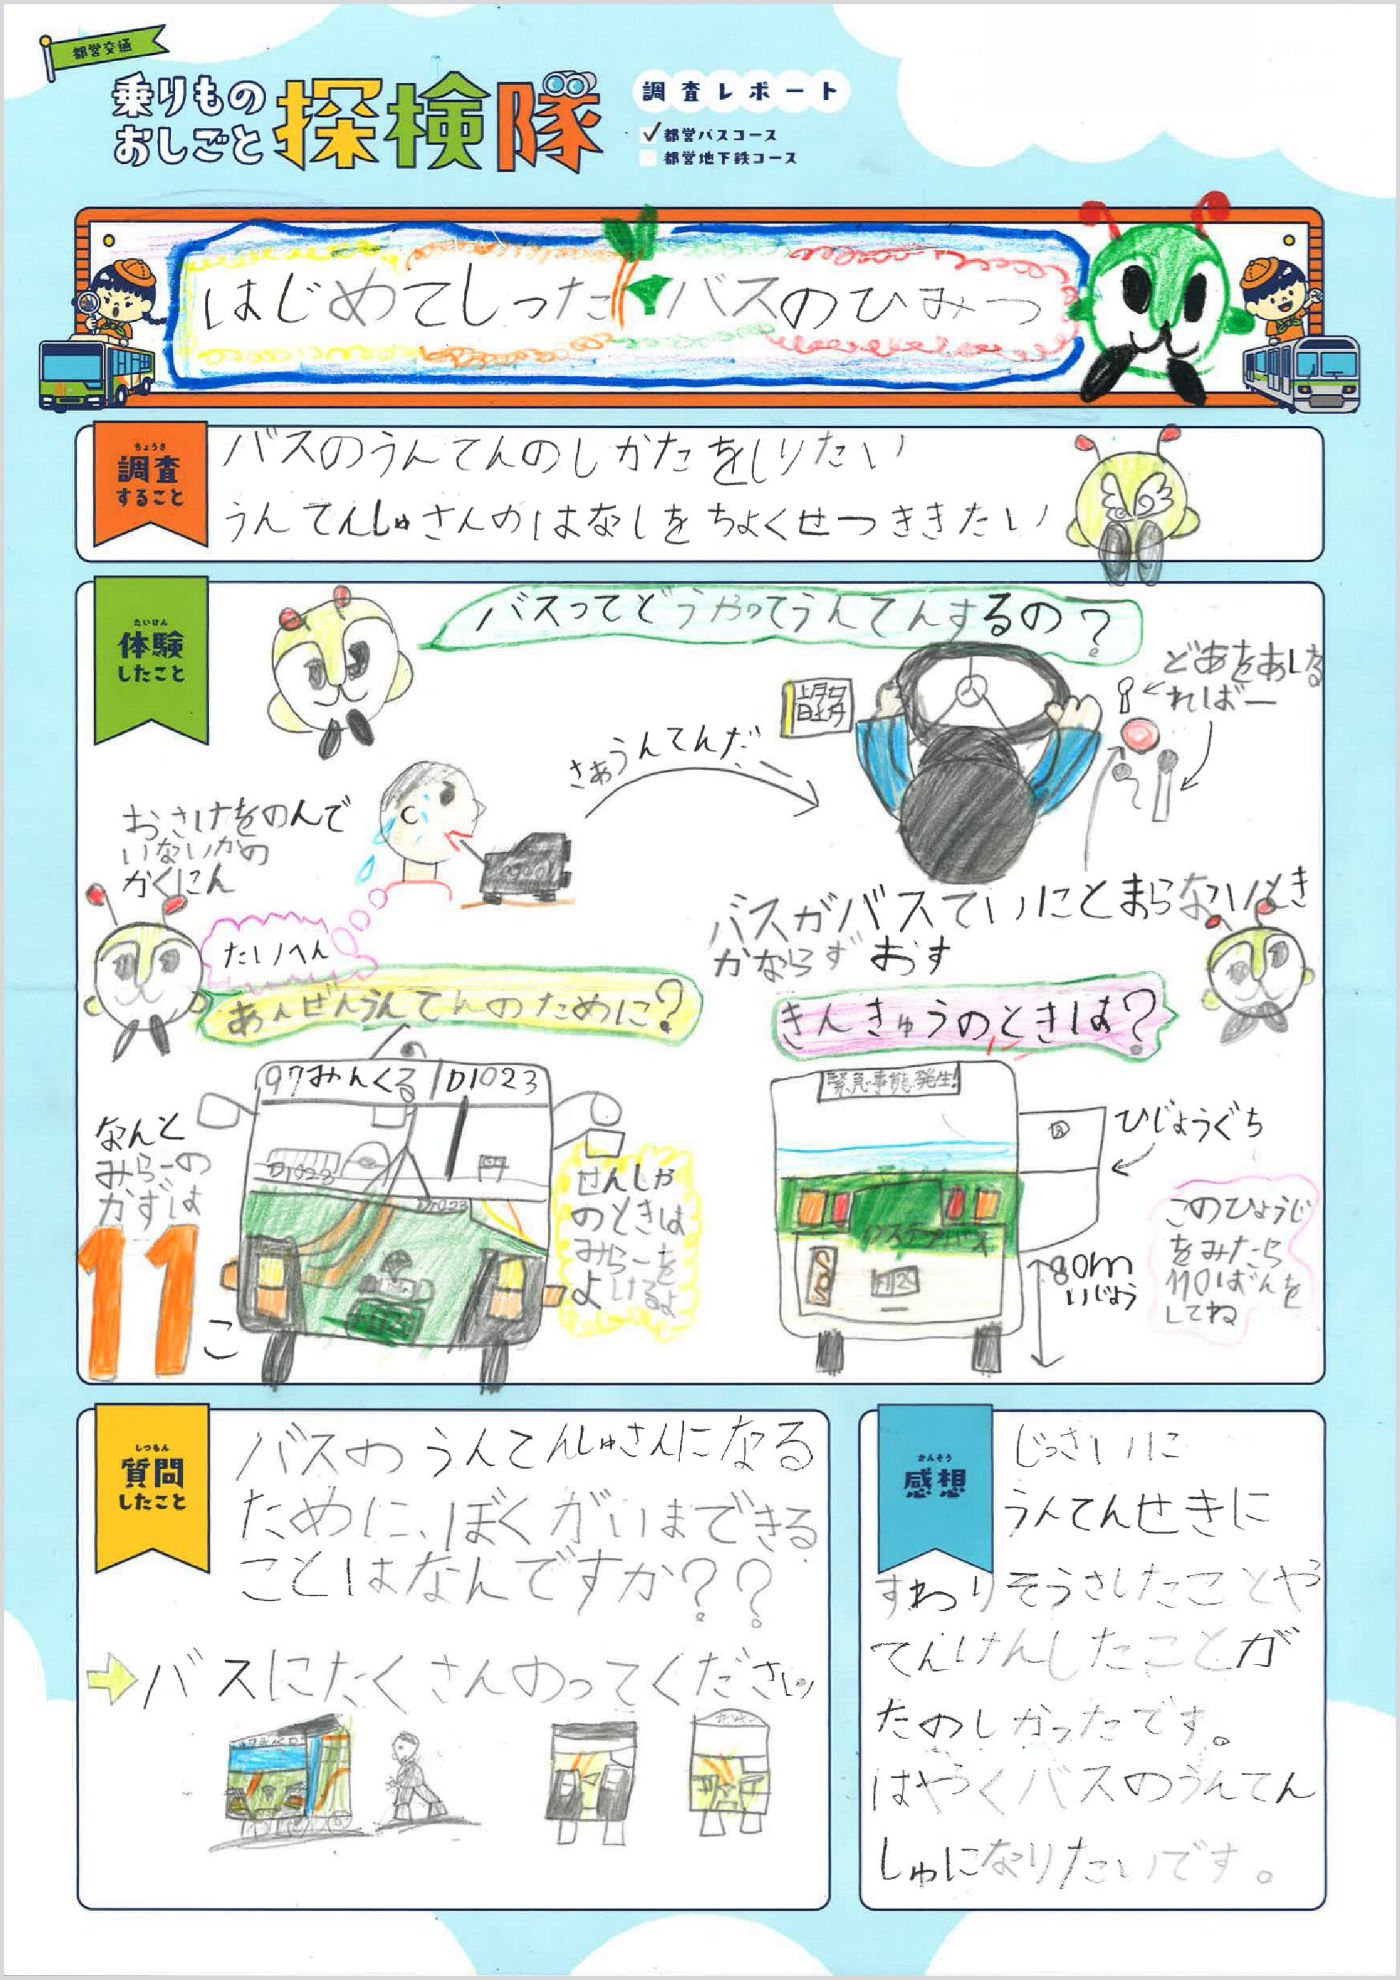 都営交通
乗りもの
おしごと
探検隊
調査レポート
✓都営バスコース
都営地下鉄コース
はじめてしったバスのひみつ
ちょうさ
調査
すること
バスのうんてんのしかたをしりたい
うんてんしゅさんのはなしをちょくせつききたい
たいけん
体験
したこと
バスってどうやってうんてんするの?
どあをあける
ればー
さあうんてんだ
おさけをのんで
いないかの
かくにん
たいへん
バスがバスていにとまらないとき
かならずおす
あんぜんうんてんのために?
きんきゅうのときは?
97みんくる D1023
D1023
D1023
なんと
みらーの
かずは
11
こ
せんしゃ
のときは
みらーを
よけるよ
緊急事態発生!
ひじょうぐち
SOS
80m
いじょう
このひょうじ
をみたら
110ばんを
してね
しつもん
質問
したこと
バスのうんてんしゅさんになる
ために、ぼくがいまできる
ことはなんですか??
バスにたくさんのってください
かんそう
感想
じっさいに
うんてんせきに
すわりそうさしたことや
てんけんしたことが
たのしかったです。
はやくバスのうんてん
しゅになりたいです。